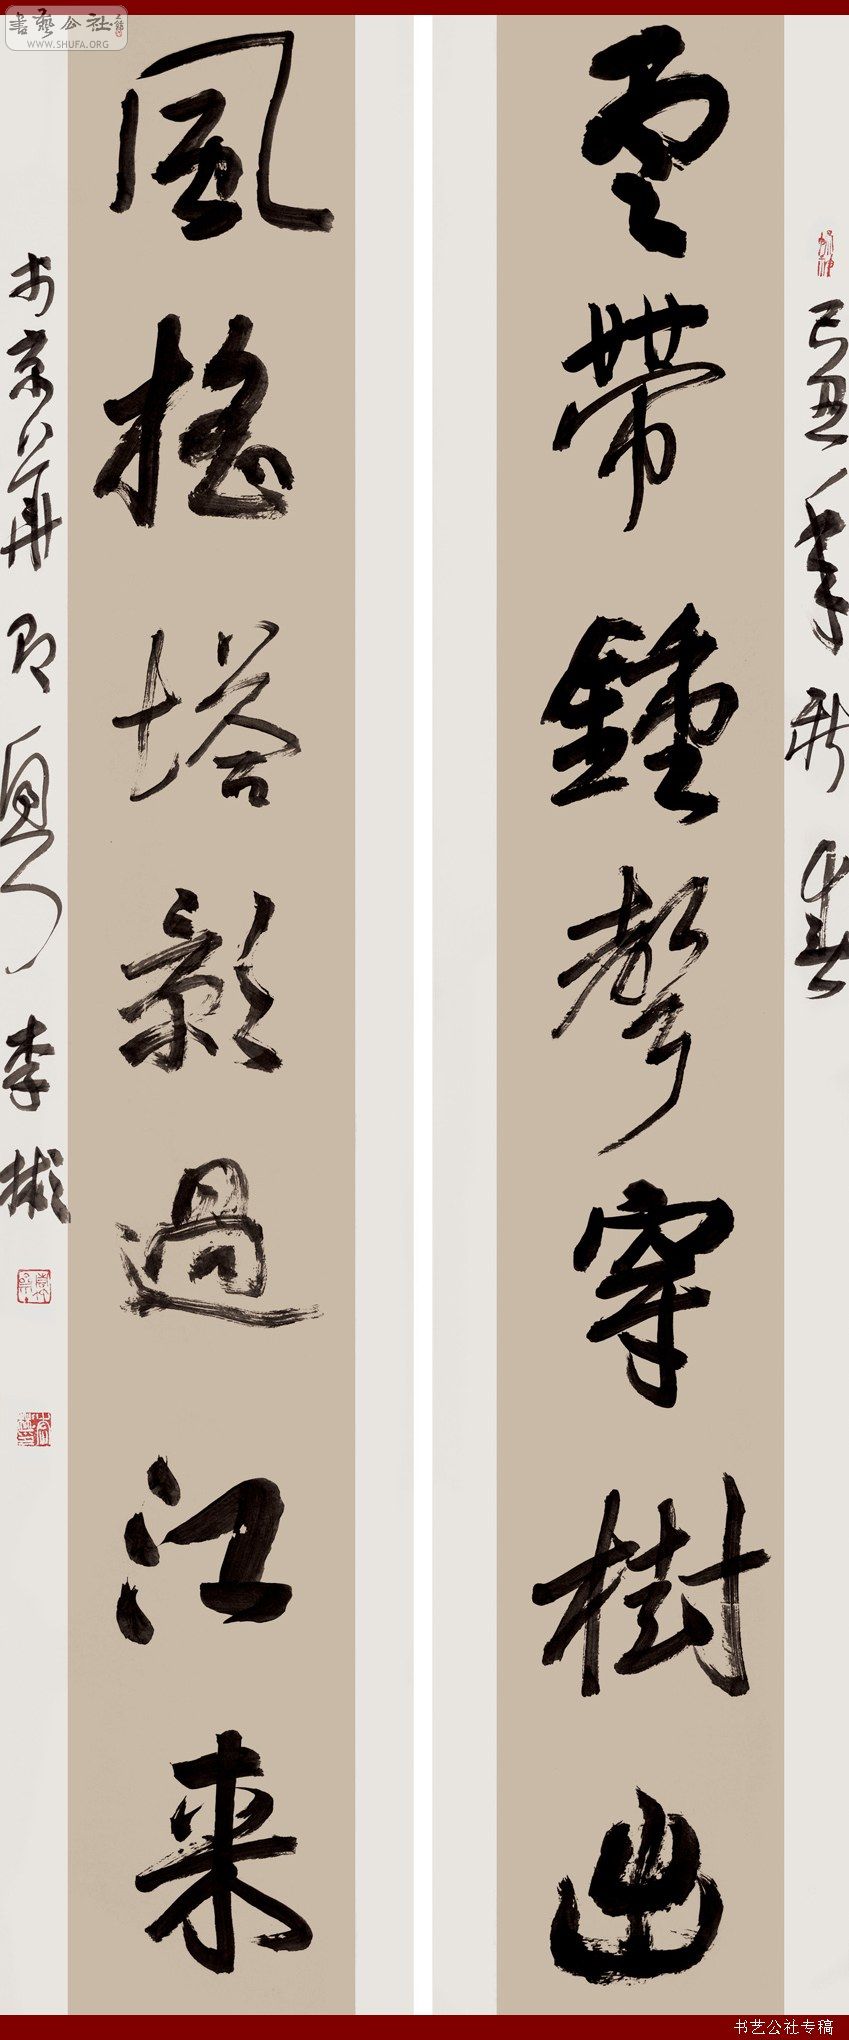 雲帶鐘聲穿樹出
風搖塔影過江來
己丑年新春
李彬
書藝公社
WWW.SHUFA.ORG
书艺公社专稿